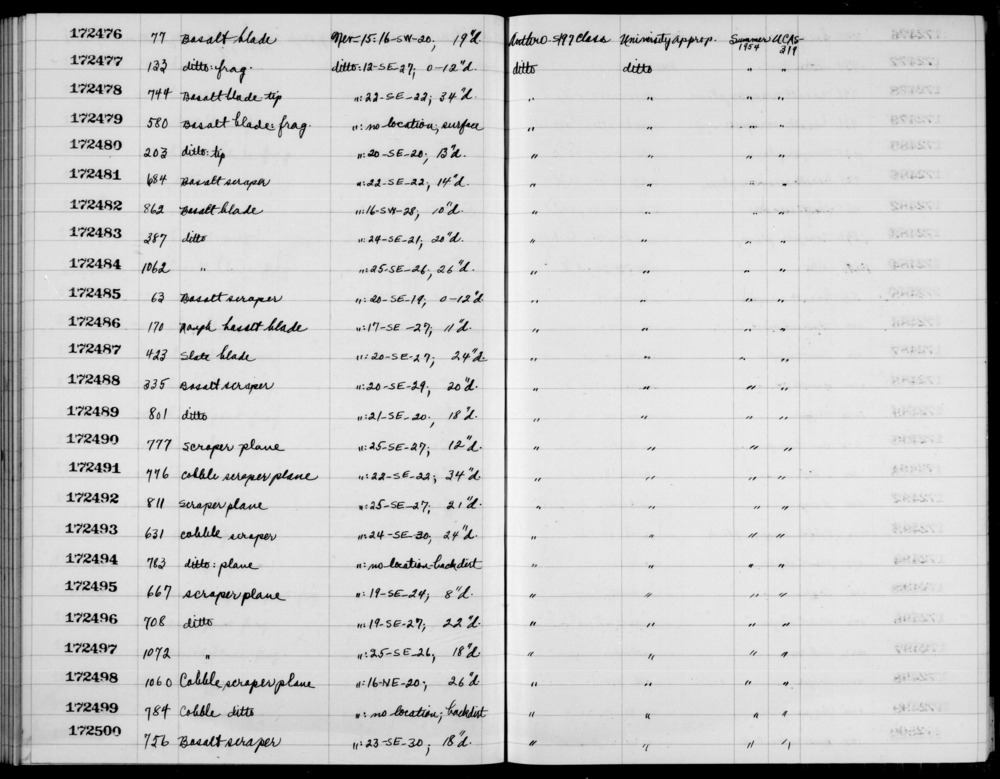 172476 77 Basalt blade Ner-15:16-SW-20; 19"d. Anthro S197 Class University approp. Summer 1954 UCAS-319
172477 133 ditto: frag. ditto: 12-SE-27; 0-12"d. ditto ditto " "
172478 744 Basalt blade tip ": 22-SE-22; 34"d. " " " "
172479 580 Basalt blade: frag. ": no location; surface " " " "
172480 203 ditto: tip ": 20-SE-20; 13"d. " " " "
172481 684 Basalt scraper ": 22-SE-22; 14"d. " " " "
172482 862 Basalt blade ": 16-SW-28; 10"d. " " " "
172483 387 ditto ": 24-SE-21; 20"d. " " " "
172484 1062 " ": 25-SE-26; 26"d. " " " "
172485 63 Basalt scraper ": 20-SE-19; 0-12"d. " " " "
172486 170 Rough basalt blade ": 17-SE-27; 11"d. " " " "
172487 423 Slate blade ": 20-SE-27; 24"d. " " " "
172488 335 Basalt scraper ": 20-SE-29; 20"d. " " " "
172489 801 ditto ": 21-SE-20; 18"d. " " " "
172490 777 scraper plane ": 25-SE-27; 12"d. " " " "
172491 776 cobble scraper plane ": 22-SE-22; 34"d. " " " "
172492 811 scraper plane ": 25-SE-27; 21"d. " " " "
172493 631 cobble scraper ": 24-SE-30; 24"d. " " " "
172494 783 ditto: plane ": no location-backdirt " " " "
172495 667 scraper plane ": 19-SE-24; 8"d. " " " "
172496 708 ditto ": 19-SE-27; 22"d. " " " "
172497 1072 " ": 25-SE-26; 18"d. " " " "
172498 1060 Cobble scraper plane ": 16-NE-20; 26"d. " " " "
172499 784 Cobble ditto ": no location; backdirt " " " "
172500 756 Basalt scraper ": 23-SE-30; 18"d. " " " "